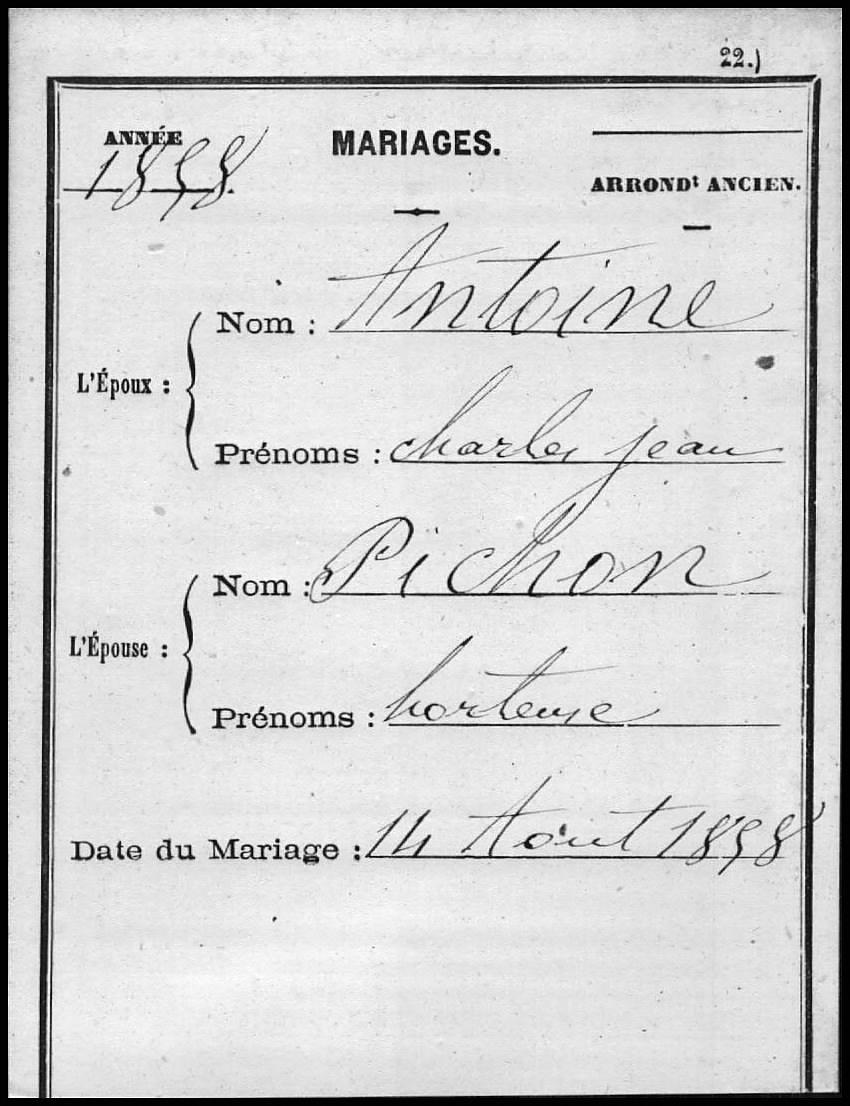 22.)
ANNÉE
1858
MARIAGES.
ARRONDt ANCIEN.
L'Époux :
Nom : Antoine
Prénoms : charles jean
L'Épouse :
Nom : Pichon
Prénoms : hortense
Date du Mariage : 14 Aout 1858